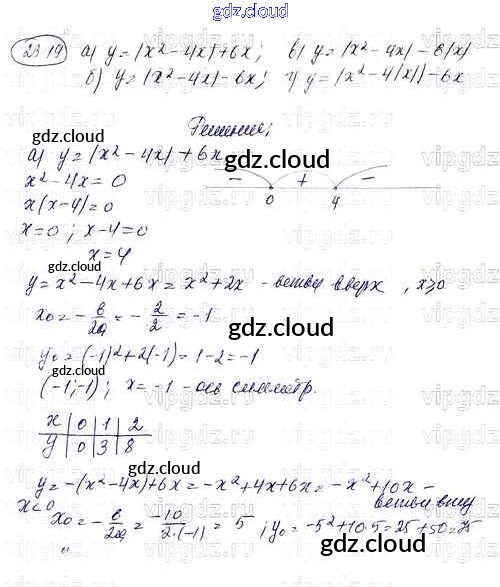 gdz.cloud
23.19 а) y = |x² - 4x| + 6x; в) y = |x² - 4x| - 6|x|
б) y = |x² - 4x| - 6x; г) y = |x² - 4|x|| - 6x
Решение;
gdz.cloud
gdz.cloud
а) y = |x² - 4x| + 6x
x² - 4x = 0
- + -
x(x-4) = 0
0 4
x = 0; x - 4 = 0
x = 4
gdz.cloud
y = x² - 4x + 6x = x² + 2x - ветви вверх, x≥0
x₀ = - в/2a = - 2/2 = -1
gdz.cloud
y₀ = (-1)² + 2(-1) = 1 - 2 = -1
(-1; -1); x = -1 - ось симметр.
gdz.cloud
x | 0 | 1 | 2
y | 0 | 3 | 8
gdz.cloud
y = -(x² - 4x) + 6x = -x² + 4x + 6x = -x² + 10x -
x<0 ветви вниз
x₀ = - в/2a = -10/2·(-1) = 5; y₀ = -5² + 10·5 = 25 + 50 = 25
gdz.cloud
gdz.cloud